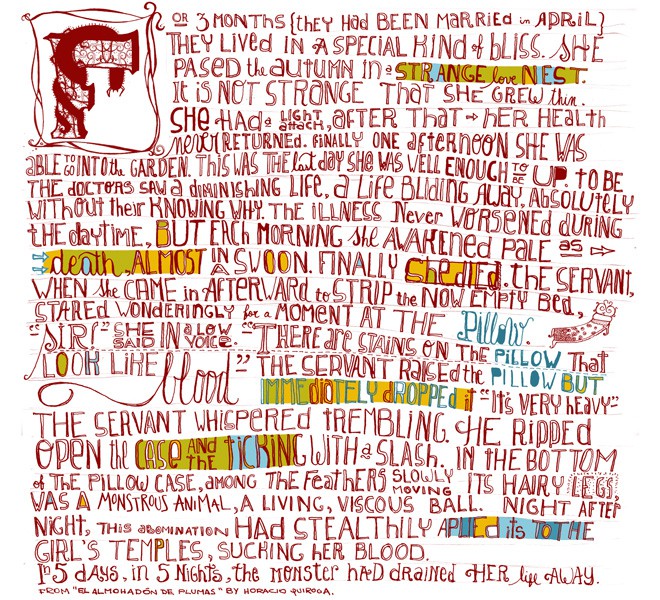 FOR 3 MONTHS {THEY HAD BEEN MARRIED in APRIL}
THEY LIVED IN A SPECIAL KIND of BLISS. SHE
PASED the AUTUMN IN a STRANGE love NEST.
IT is NOT STRANGE THAT SHE GREW thin.
SHE HAD a LIGHT attack, AFTER THAT → HER HEALTH
never RETURNED. FINALLY ONE afternoon SHE WAS
ABLE TO GO INTO the GARDEN. THIS WAS THE last day SHE WAS WELL ENOUGH TO BE UP. TO BE
THE DOCTORS SAW a DIMINISHING LIFE, a LIFE BLIDING AWAY, ABSOLUTELY
WITHOUT their KNOWING WHY. THE ILLNESS Never WORSENED DURING
the daytime, BUT EACH MORNING she AWAKENED PALE as ⇨
death, ALMOST IN A SWOON. FINALLY She dIEd. THE SERVANT,
WHEN she CAME in AFTERWARD to STRIP the NOW EMPTY BED,
STARED WONDERINGLY for a MOMENT AT THE Pillow.
"SIR!" SHE SAID IN a LOW VOICE. "THERE are STAINS ON THE PILLOW THAT
LOOK LIKE blood" THE SERVANT RAISED the PILLOW BUT
IMMEdiaTELY dROPPEd iT "IT'S VERY HEAVY"
THE SERVANT WHISPERED TREMBLING. HE RIPPED
OPEN the CASE AND THE TICKING WITH a SLASH. IN THE BOTTOM
of THE PILLOW CASE, AMONG THE FEATHERS SLOWLY MOVING ITS HAIRY LEGS,
WAS A MONSTROUS ANIMAL, A LIVING, VISCOUS BALL. NIGHT AFTER
NIGHT, THIS ABOMINATION HAD STEALTHILY APLIEd iTS TO THE
GIRL'S TEMPLES, SUCKING hER BLOOD.
IN 5 DAYS, in 5 NIGHTS, the MONSTER HAD DRAINED HER life AWAY.
FROM "EL ALMOHADÓN DE PLUMAS" BY HORACIO QUIROGA.